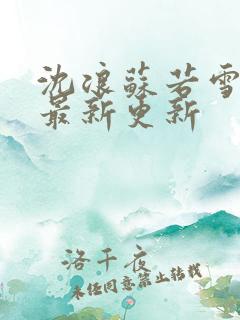 沈浪蘇若雪
最新更新
洛千夜
未经同意禁止转载